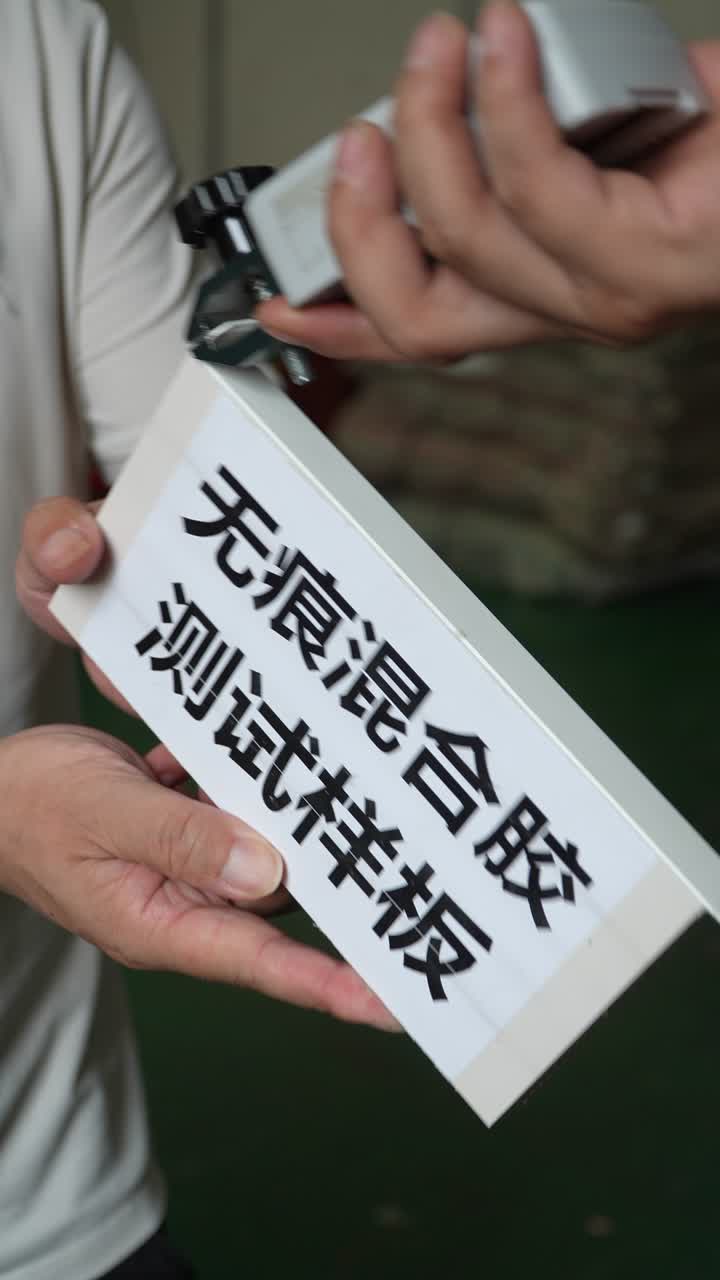 无痕混合胶
测试样板